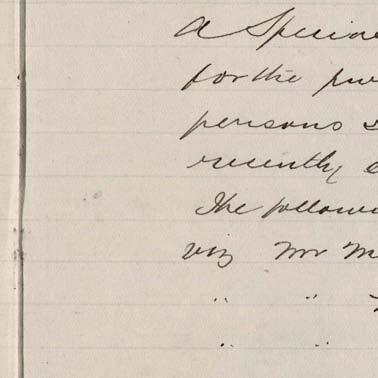 a Specia
for the pur
persons
recently
The followi
viz Mr M
" "
" "